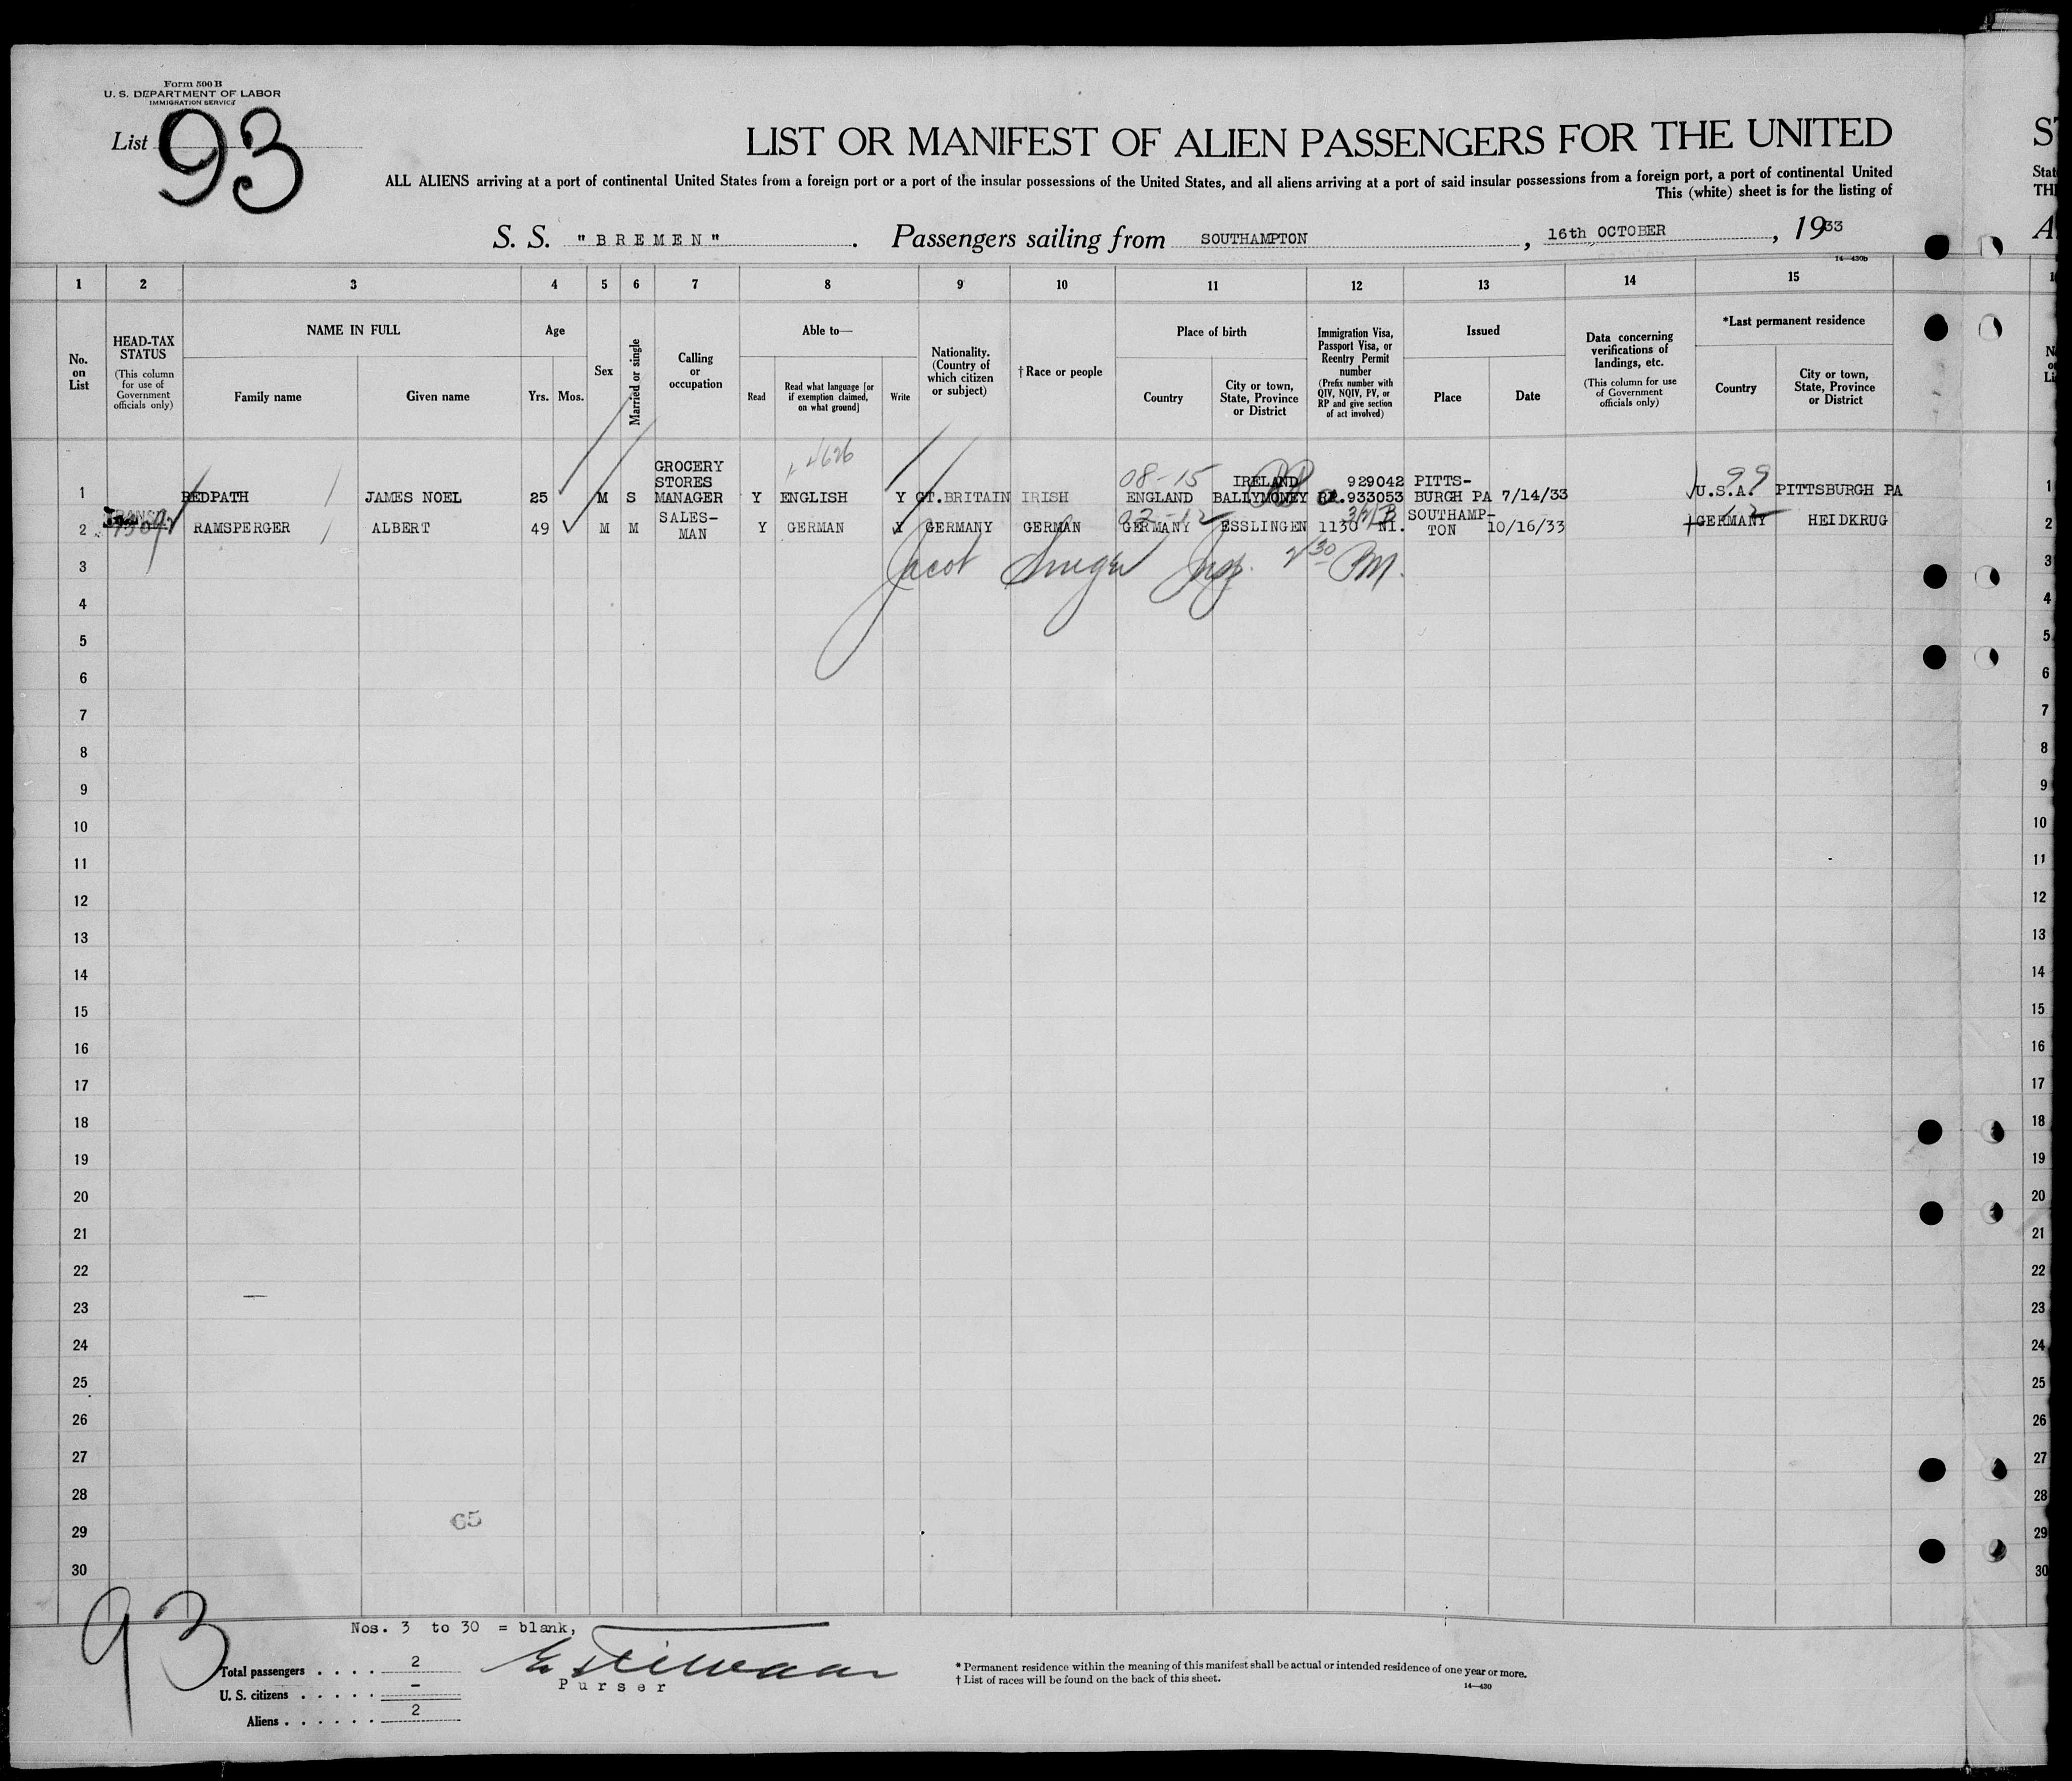 Form 500 B
U. S. DEPARTMENT OF LABOR
IMMIGRATION SERVICE
List 93
LIST OR MANIFEST OF ALIEN PASSENGERS FOR THE UNITED
ALL ALIENS arriving at a port of continental United States from a foreign port or a port of the insular possessions of the United States, and all aliens arriving at a port of said insular possessions from a foreign port, a port of continental United
This (white) sheet is for the listing of
S. S. "BREMEN". Passengers sailing from SOUTHAMPTON, 16th OCTOBER, 1933
14—430b
1 2 3 4 5 6 7 8 9 10 11 12 13 14 15
No. on List
HEAD-TAX STATUS
(This column for use of Government officials only)
NAME IN FULL
Family name
Given name
Age
Yrs. Mos.
Sex
Married or single
Calling or occupation
Able to—
Read
Read what language [or if exemption claimed, on what ground]
Write
Nationality. (Country of which citizen or subject)
† Race or people
Place of birth
Country
City or town, State, Province or District
Immigration Visa, Passport Visa, or Reentry Permit number
(Prefix number with QIV, NQIV, PV, or RP and give section of act involved)
Issued
Place
Date
Data concerning verifications of landings, etc.
(This column for use of Government officials only)
*Last permanent residence
Country
City or town, State, Province or District
4626
08-15
99
1 REDPATH JAMES NOEL 25 M S GROCERY STORES MANAGER Y ENGLISH Y GT.BRITAIN IRISH ENGLAND IRELAND BALLYMONEY 929042 RP.933053 PITTS- BURGH PA 7/14/33 U.S.A. PITTSBURGH PA 1
02-12
2 RAMSPERGER ALBERT 49 M M SALES- MAN Y GERMAN Y GERMANY GERMAN GERMANY ESSLINGEN 1130 NI. SOUTHAMP- TON 10/16/33 GERMANY HEIDKRUG 2
3 Jacob Insp. 2 30 PM. 3
4 4
5 5
6 6
7 7
8 8
9 9
10 10
11 11
12 12
13 13
14 14
15 15
16 16
17 17
18 18
19 19
20 20
21 21
22 22
23 23
24 24
25 25
26 26
27 27
28 28
29 29
30 30
65
93
Nos. 3 to 30 = blank,
Total passengers . . . . 2
U. S. citizens . . . . . –
Aliens . . . . . . 2
Purser
* Permanent residence within the meaning of this manifest shall be actual or intended residence of one year or more.
† List of races will be found on the back of this sheet.
14—430